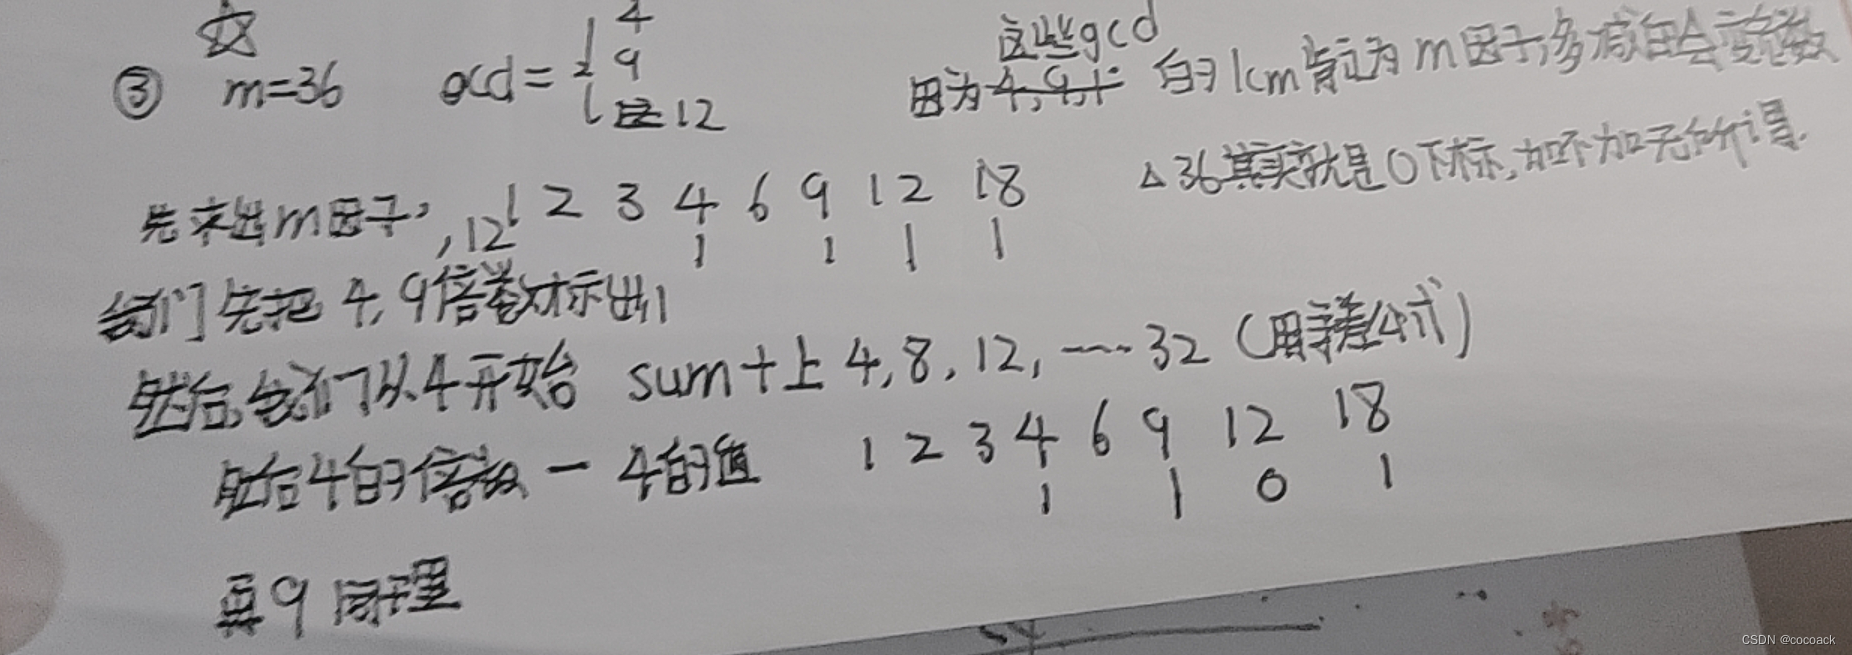 ☆
③ m=36 gcd = { 4
9
12
这些gcd
因为4,9,12 的lcm肯定为m因子,多减的会变负数
△36其实就是0下标,加不加无所谓.
先求出m因子, 1 2 3 4 6 9 12 18
,12 1 1 1 1
我们先把4,9倍数标出1
然后,我们从4开始 sum+上4,8,12,……32 (用等差公式)
然后4的倍数 — 4的值 1 2 3 4 6 9 12 18
1 1 0 1
再9同理
CSDN @cocoack